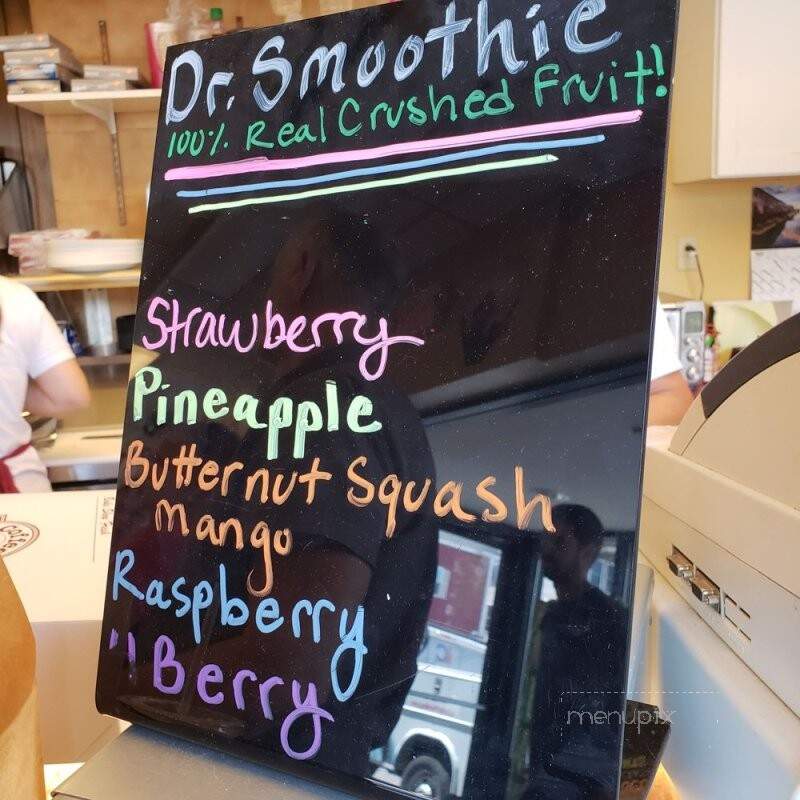 Dr. Smoothie
100% Real Crushed Fruit!
Strawberry
Pineapple
Butternut Squash
Mango
Raspberry
4 Berry
menupix